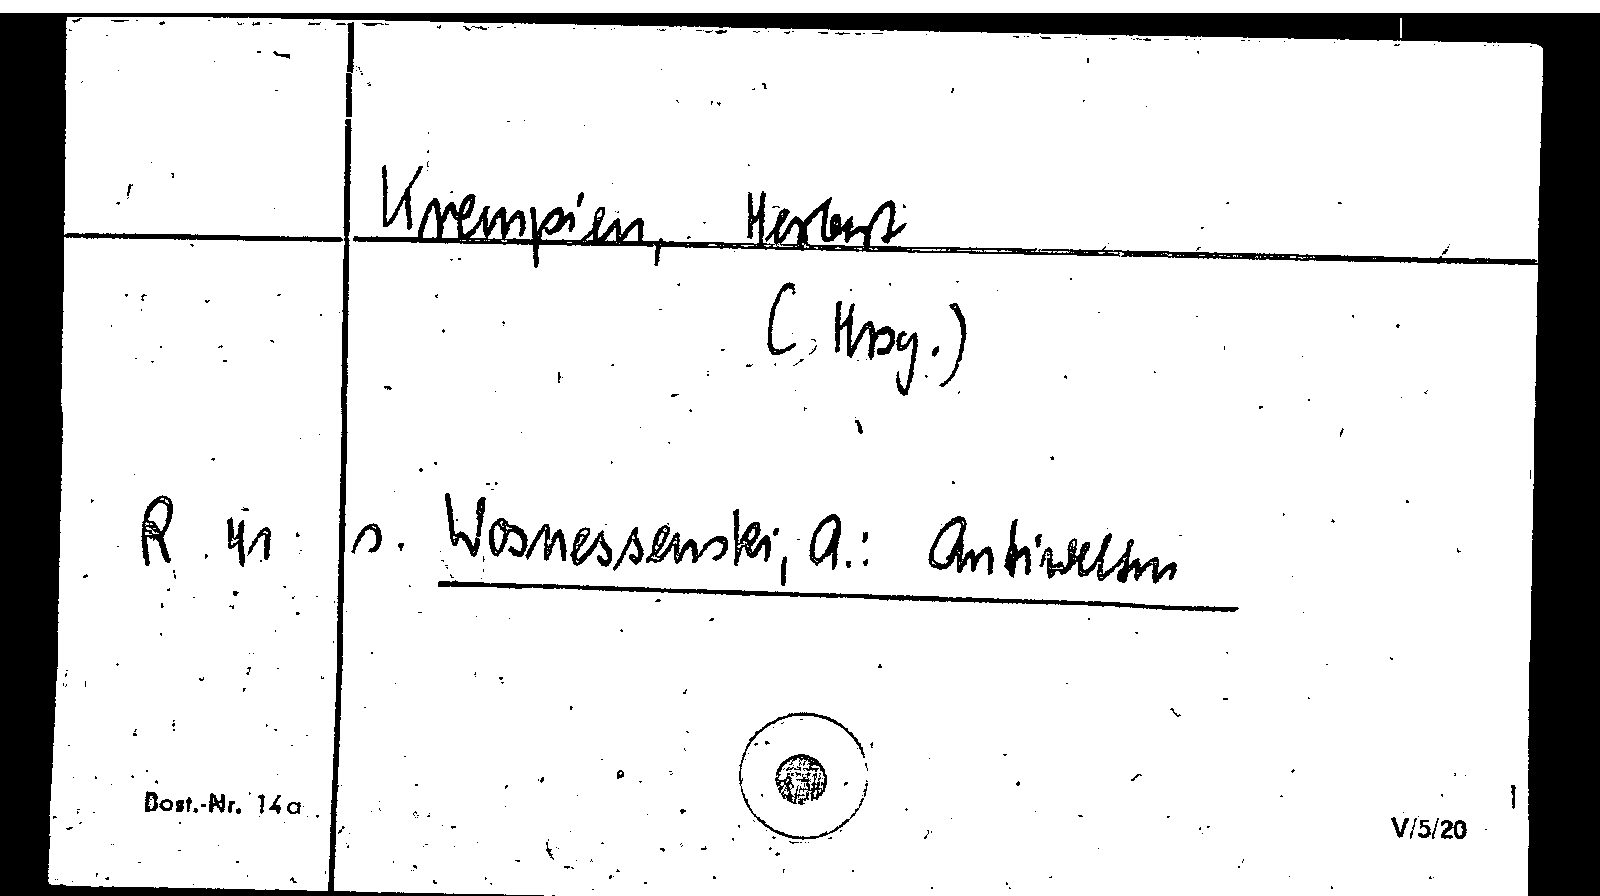 Krempien, Herbert
(Hrsg.)
R 41 s. Wosnessenski, A.: Antiwelten
Best.-Nr. 14a
V/5/20